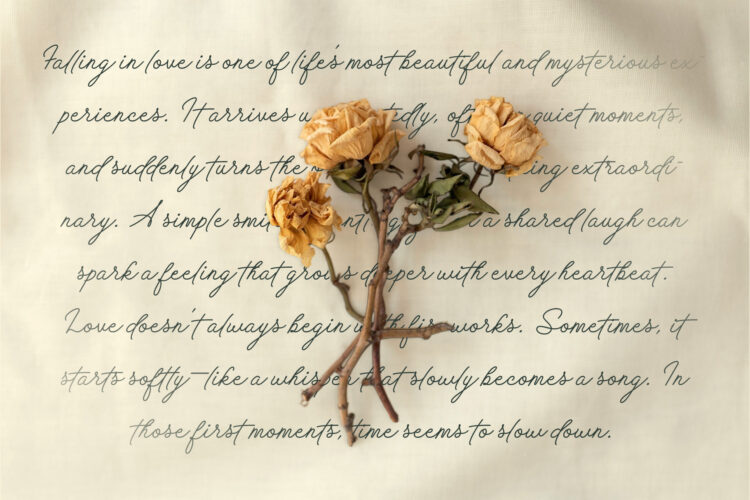 Falling in love is one of life's most beautiful and mysterious ex-
periences. It arrives quiet moments,
and suddenly turns the extraordi-
nary. A simple a shared laugh can
spark a feeling that grows deeper with every heartbeat.
Love doesn't always begin with fireworks. Sometimes, it
starts softly—like a whisper that slowly becomes a song. In
those first moments, time seems to slow down.